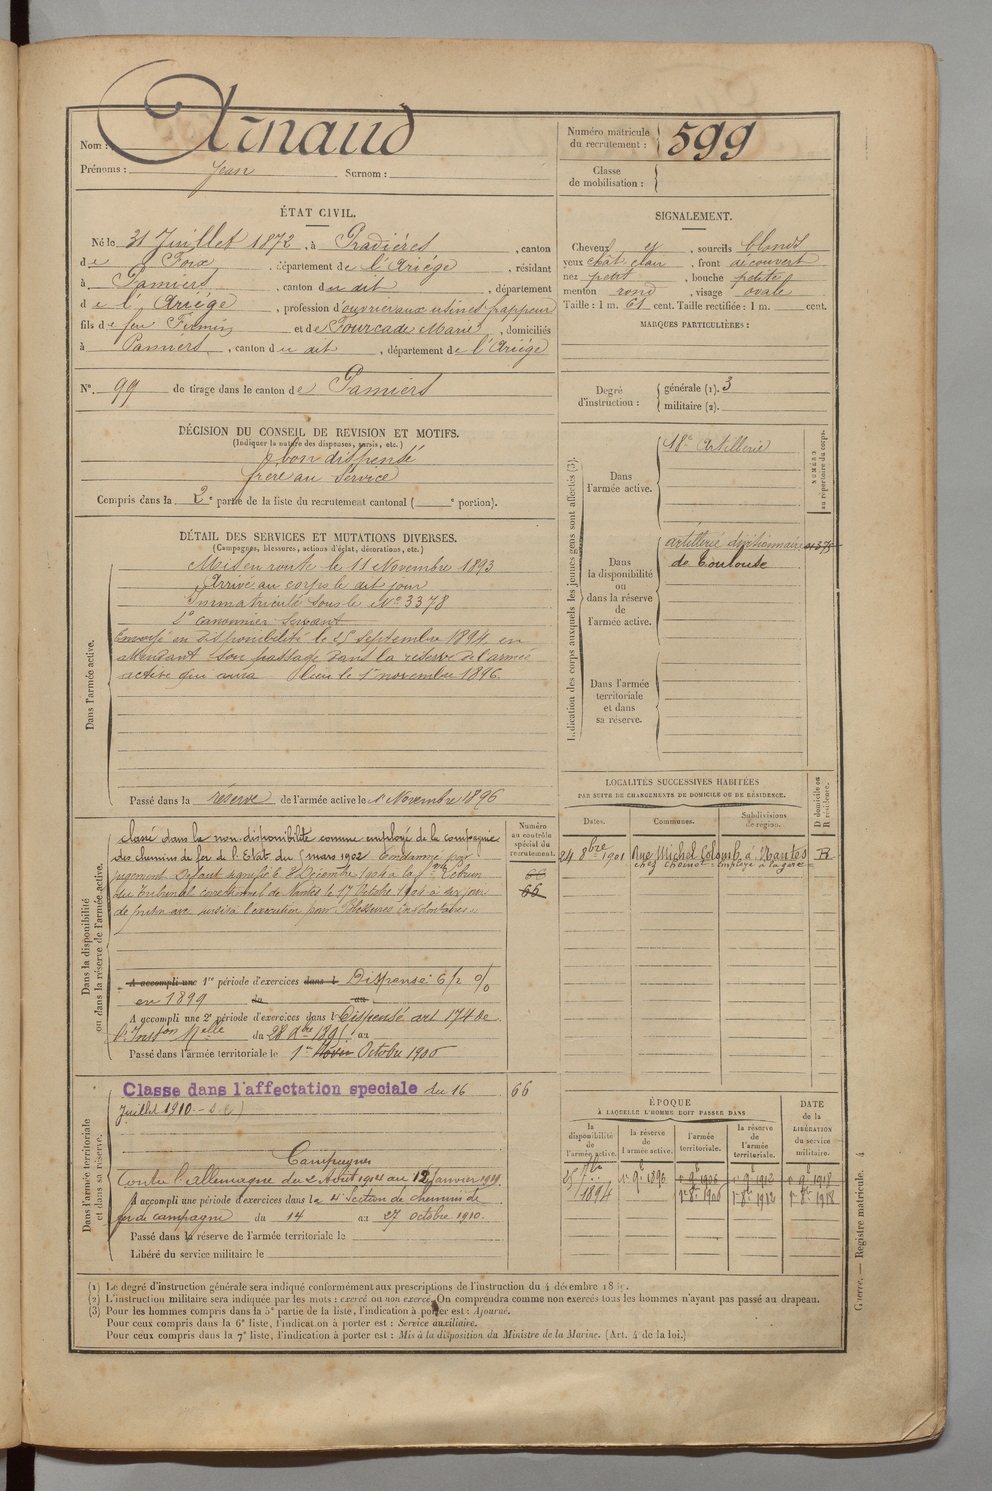 Nom : Arnaud
Prénoms : Jean Surnom :
Numéro matricule du recrutement : 599
Classe de mobilisation :
ÉTAT CIVIL.
Né le 31 Juillet 1872, à Pradières, canton
de Foix, département de l'Ariège, résidant
à Pamiers, canton du dit, département
de l'Ariège, profession d'ouvrier aux usines frappeur
fils de feu Firmin et de Fourcade Marie, domiciliés
à Pamiers, canton du dit, département de l'Ariège
N° 99 de tirage dans le canton de Pamiers
SIGNALEMENT.
Cheveux et, sourcils blonds
yeux chât clair, front découvert
nez petit, bouche petite
menton rond, visage ovale
Taille : 1 m. 61 cent. Taille rectifiée : 1 m. cent.
MARQUES PARTICULIÈRES :
Degré d'instruction : générale (1). 3
militaire (2).
DÉCISION DU CONSEIL DE REVISION ET MOTIFS.
(Indiquer la nature des dispenses, sursis, etc.)
bon dispensé
frère au service
Compris dans la 2e partie de la liste du recrutement cantonal ( e portion).
DÉTAIL DES SERVICES ET MUTATIONS DIVERSES.
(Campagnes, blessures, actions d'éclat, décorations, etc.)
Dans l'armée active.
Mis en route le 11 Novembre 1893
Arrivé au corps le dit jour
Immatriculé sous le N° 3378
2e canonnier servant
Envoyé en Disponibilité le 25 septembre 1894, en
attendant son passage dans la réserve de l'armée
active qui aura lieu le 1er novembre 1896.
Passé dans la réserve de l'armée active le 1er Novembre 1896
Indication des corps auxquels les jeunes gens sont affectés (3).
NUMÉRO au répertoire du corps.
Dans l'armée active.
18e Artillerie
Dans la disponibilité ou dans la réserve de l'armée active.
artillerie
de Toulouse
Dans l'armée territoriale et dans sa réserve.
Dans la disponibilité ou dans la réserve de l'armée active.
Classé dans la non-disponibilité comme employé de la compagnie
des chemins de fer de l'Etat du 5 mars 1902 Condamné par
jugement Défaut signifié le 2 Décembre 1904 à la
du Tribunal correctionnel de Nantes le 17 Octobre 1904 à six jours
de prison avec sursis à l'exécution pour Blessures involontaires.
Numéro au contrôle spécial du recrutement.
66
66
A accompli une 1re période d'exercices dans l Dispensé 6 1/2 o/o
en 1899 du au
A accompli une 2e période d'exercices dans l Dispensé art 174 de
l'Inston Melle du 28 Xbre 1895 au
Passé dans l'armée territoriale le 1er Octobre 1906
LOCALITÉS SUCCESSIVES HABITÉES
PAR SUITE DE CHANGEMENTS DE DOMICILE OU DE RÉSIDENCE.
D domicile ou R résidence.
Dates. Communes. Subdivisions de région.
24 8bre 1901 Rue Michel Colomb, à Nantes R
employé à la gare
Dans l'armée territoriale et dans sa réserve.
Classe dans l'affectation speciale du 16
Juillet 1910
66
Campagnes
Contre l'Allemagne du 2 Août 1914 au 12 Janvier 1919
A accompli une période d'exercices dans la 4e Section de chemins de
fer de campagne du 14 au 27 octobre 1910.
Passé dans la réserve de l'armée territoriale le
Libéré du service militaire le
ÉPOQUE
À LAQUELLE L'HOMME DOIT PASSER DANS
DATE de la LIBÉRATION du service militaire.
la disponibilité de l'armée active.
la réserve de l'armée active.
l'armée territoriale.
la réserve de l'armée territoriale.
25 7bre 1894
(1) Le degré d'instruction générale sera indiqué conformément aux prescriptions de l'instruction du 4 décembre
(2) L'instruction militaire sera indiquée par les mots : exercé ou non exercé. On comprendra comme non exercés tous les hommes n'ayant pas passé au drapeau.
(3) Pour les hommes compris dans la 5e partie de la liste, l'indication à porter est : Ajourné.
Pour ceux compris dans la 6e liste, l'indication à porter est : Service auxiliaire.
Pour ceux compris dans la 7e liste, l'indication à porter est : Mis à la disposition du Ministre de la Marine. (Art. 4 de la loi.)
Guerre. — Registre matricule. 4